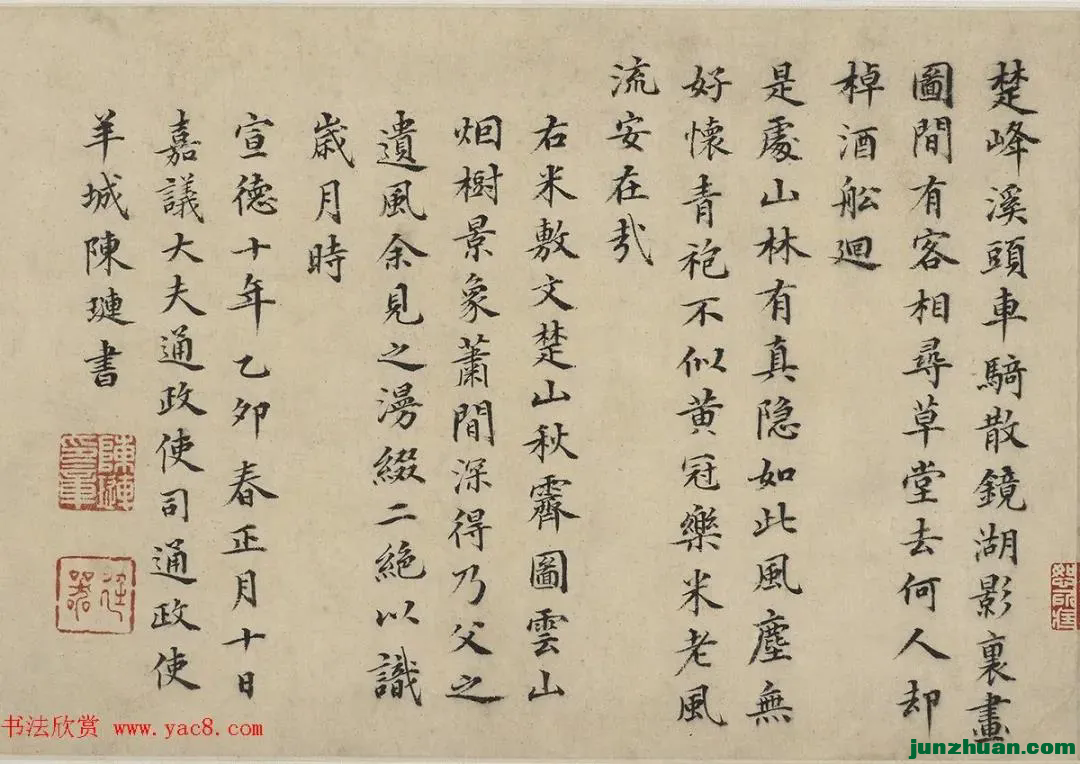 楚峰溪頭車騎散鏡湖影裏畫
圖間有客相尋草堂去何人却
棹酒舩廻
是處山林有真隐如此風塵無
好懷青袍不似黄冠樂米老風
流安在㢤
右米敷文楚山秋霽圖雲山
烟樹景象蕭間深得乃父之
遺風余見之漫綴二絶以識
歳月時
宣德十年乙卯春正月十日
嘉議大夫通政使司通政使
羊城陳璉書
陳璉
书法欣赏 www.yac8.com
junzhuan.com